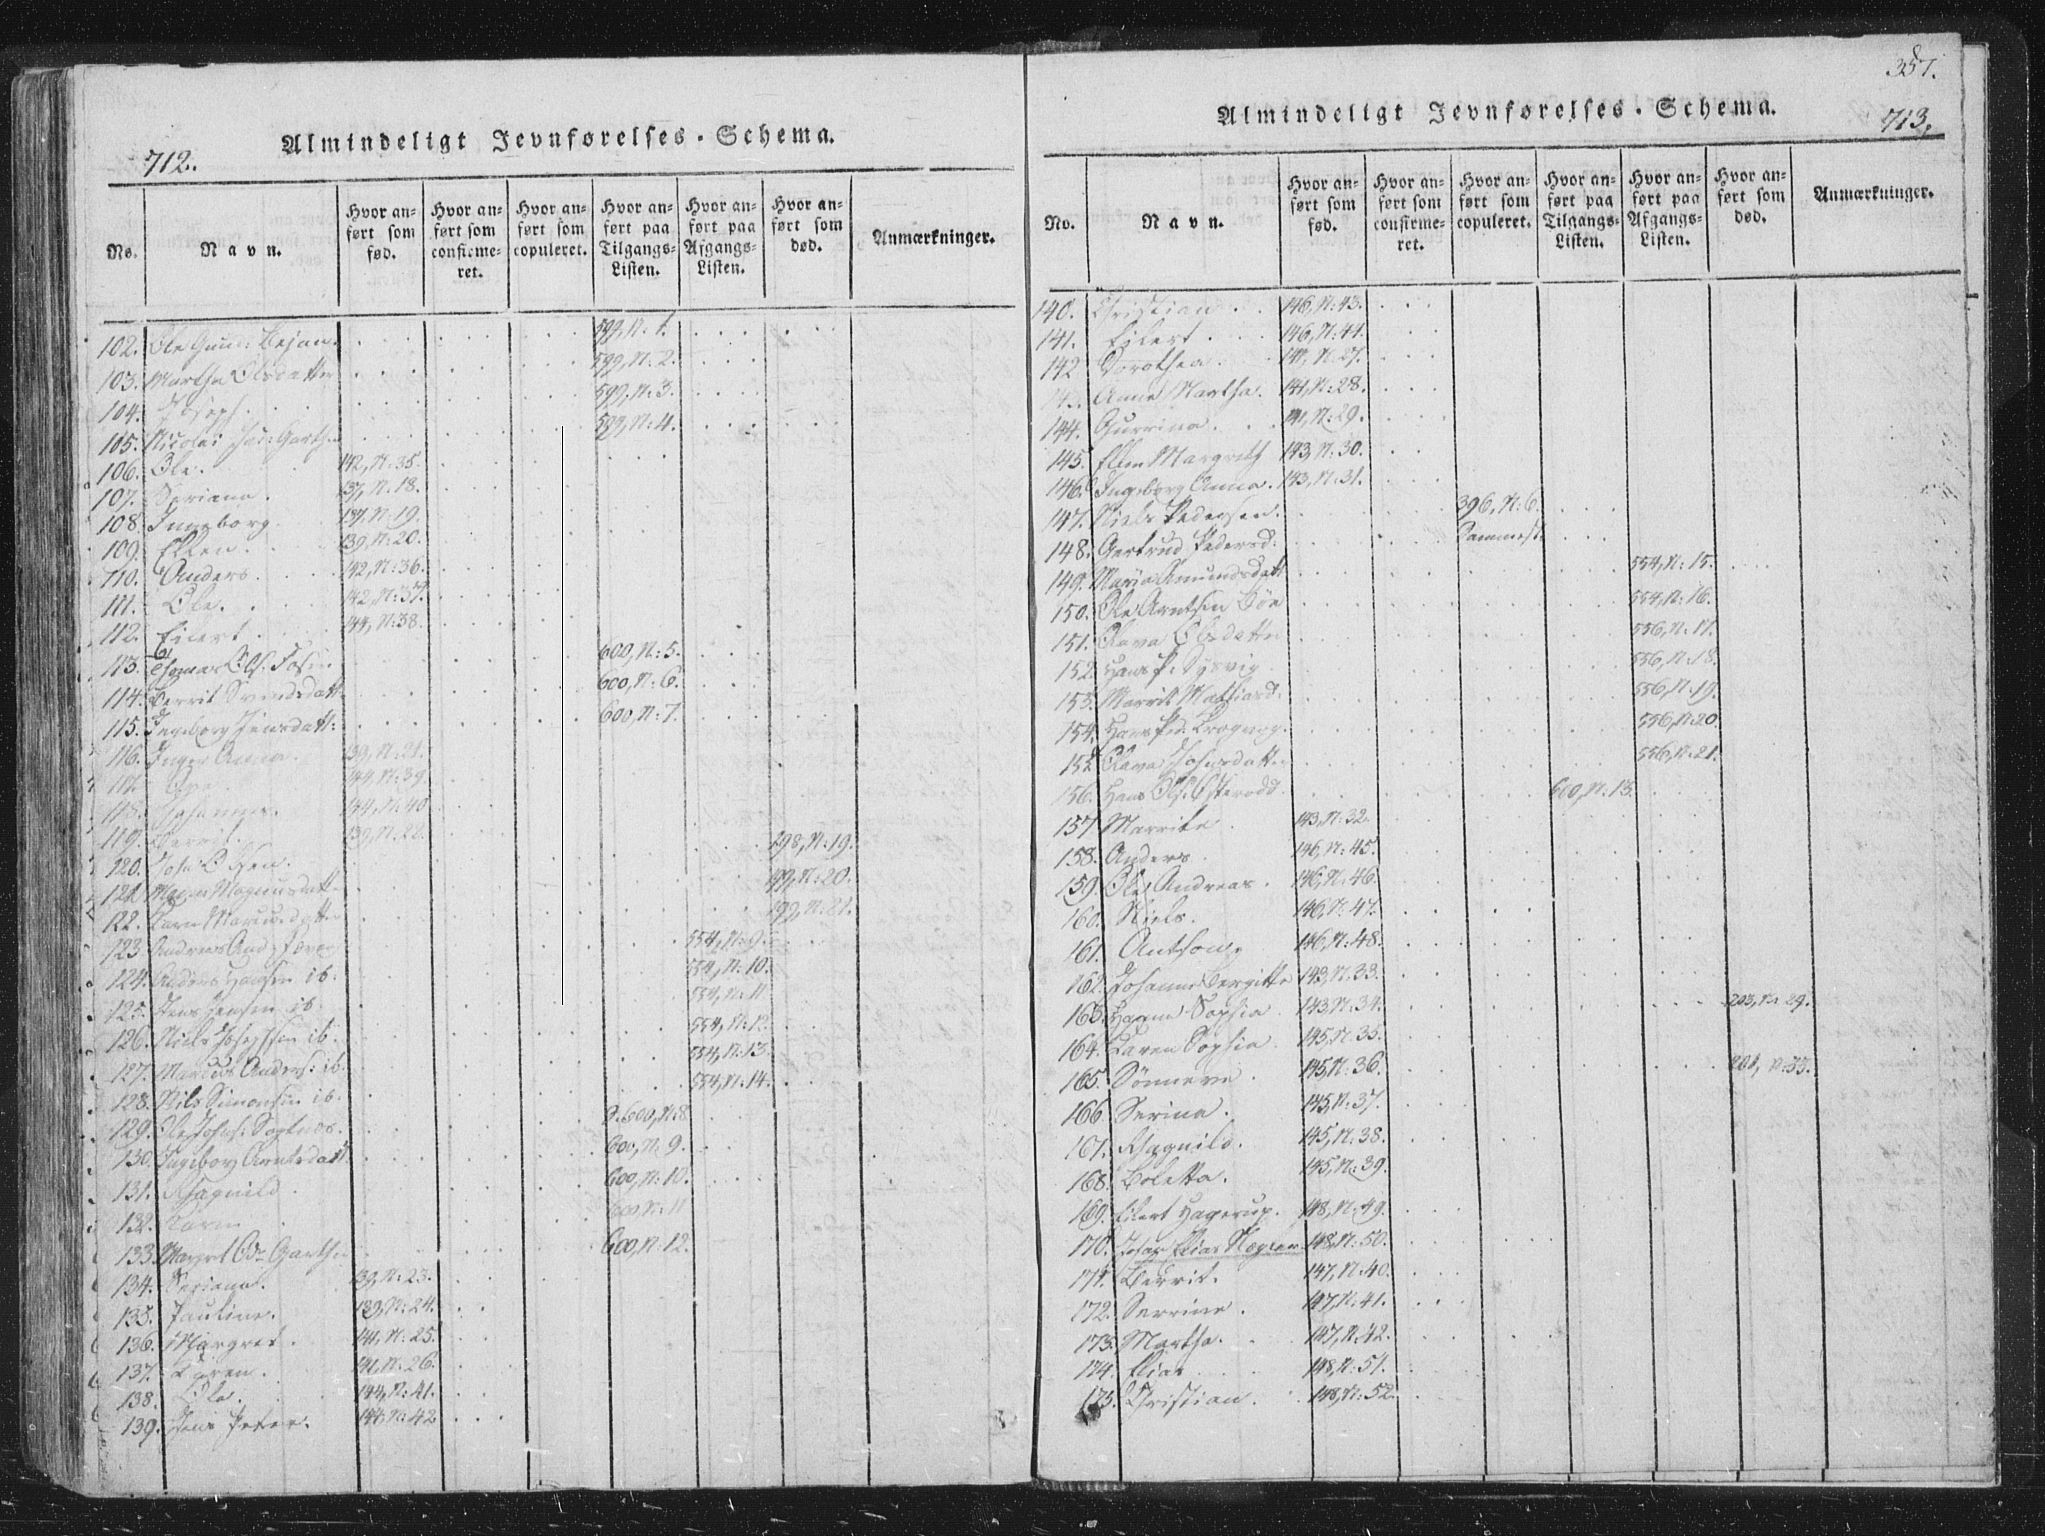 712.
Almindeligt Jevnførelses-Schema.
No.
Navn.
Hvor anført som fød.
Hvor anført som confirmeret.
Hvor anført som copuleret.
Hvor anført paa Tilgangs-Listen.
Hvor anført paa Afgangs-Listen.
Hvor anført som død.
Anmærkninger.
102. Ole 599, N: 1.
103. Martha Olsdatter 599, N: 2.
104. Joseph. 599, N: 3.
105. Nicolai 599, N: 4.
106. Ole. 142, N: 35.
107. Seriana. 137, N: 18.
108. Ingeborg 137, N: 19.
109. Ellen. 139, N: 20.
110. Anders. 142, N: 36.
111. Ole. 142, N: 37.
112. Eilert. 144, N: 38.
113. Thomas Ols: 600, N: 5.
114. Berrit Svendsdatt: 600, N: 6.
115. Ingeborg Jensdatt: 600, N: 7.
116. Inger Anna. 139, N: 21.
117. 144, N: 39.
118. Johannes. 144, N: 40
119. Berrit. 139, N: 22.
120. Joh: Olsen. 198, N: 19.
121. Magnusdatt: 199, N: 20.
122. Karen 199, N: 21.
123. Andreas And: 554, N: 9.
124. Anders Hansen ib. 554, N: 10.
125. Jens Jensen ib. 554, N: 11
126. Niels Josephsen ib. 554, N: 12.
127. Marcus Anders: ib. 554, N: 13.
128. Nils Simonsen ib. 554, N: 14.
129. Ole Johns: 600, N: 8.
130. Ingebor Arntsdatt. 600, N: 9.
131. Ragnild. 600, N: 10.
132. Karen 600, N: 11
133. Margret 600, N: 12.
134. Seriana. 139, N: 23.
135. Pauline. 139, N: 24.
136. Margret. 141, N: 25.
137. Karen. 141, N: 26.
138. Ole. 144, N: 41.
139. Jens Peter. 144, N: 42
387.
713.
Almindeligt Jevnførelses-Schema.
No.
Navn.
Hvor anført som fød.
Hvor anført som confirmeret.
Hvor anført som copuleret.
Hvor anført paa Tilgangs-Listen.
Hvor anført paa Afgangs-Listen.
Hvor anført som død.
Anmærkninger.
140. Christian. 146, N: 43.
141. Eilert. 146, N: 44.
142 Dorothea. 141, N: 27.
143. Anne Martha. 141, N: 28.
144. Gurrina. 141, N: 29.
145. Ellen Margreth 143, N: 30.
146. Ingeborg Anna. 143, N: 31.
147. Niels Pedersen. 396, N: 6.
148. Gertrud Pedersd: Sammest.
149. Maria Amundsdatt 554, N: 15.
150. Ole Arntsen 554, N: 16.
151. Olava Olsdatter 556, N: 17.
152. Hans P: 556, N: 18.
153. Marrit Mathiasd: 556, N: 19.
154. Hans Ped: 556, N: 20
155. Olava Johnsdatter 556, N: 21.
156. Hans Ols: 600, N: 13.
157 Marrite 143, N: 32.
158. Anders. 146, N: 45.
159. Ole Andreas. 146, N: 46.
160. Niels. 146, N: 47.
161. Anthon. 146, N: 48.
162. Johanna Bergitte 143, N: 33.
163. Hanna Sophia. 143, N: 34. 203, N: 29.
164. Karen Sophia. 145, N: 35.
165. Sønneve. 145, N: 36. 201, N: 33.
166 Serina. 145, N: 37.
167. Ragnild. 145, N: 38.
168. Boletta. 145, N: 39.
169. Eilert Hagerup. 148, N: 49.
170. Elias 148, N: 50.
171. Berrit. 147, N: 40.
172. Serrine. 147, N: 41.
173. Martha. 147, N: 42.
174. Elias 148, N: 51.
175. Christian. 148, N: 52.